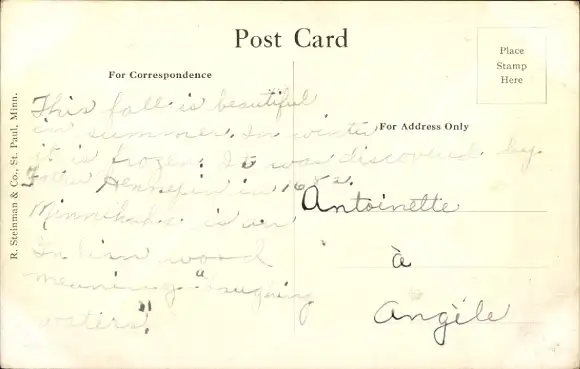 Post Card
Place
Stamp
Here
For Correspondence
For Address Only
R. Steinman & Co., St. Paul, Minn.
This fall is beautiful
in summer. In winter
it is frozen. It was discovered by
Father Hennepin in 1682.
Minnihaha is an
Indian word
meaning "laughing
waters".
Antoinette
à
Angèle